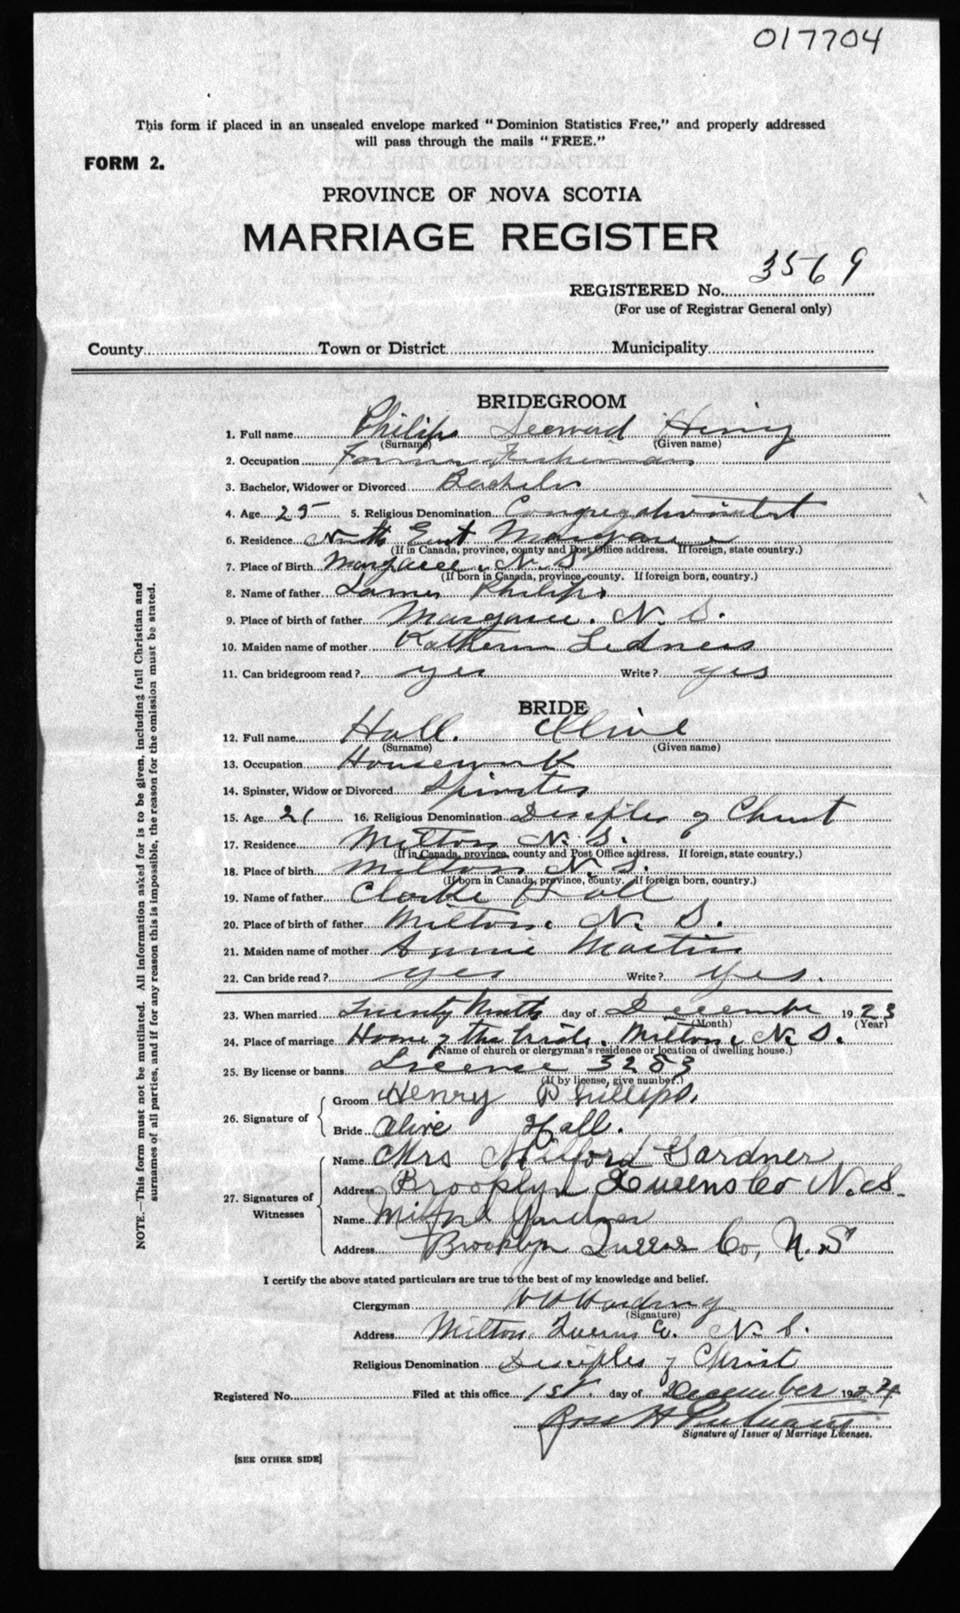 017704
This form if placed in an unsealed envelope marked "Dominion Statistics Free," and properly addressed
will pass through the mails "FREE."
FORM 2.
PROVINCE OF NOVA SCOTIA
MARRIAGE REGISTER
3569
REGISTERED No.
(For use of Registrar General only)
County Town or District Municipality
BRIDEGROOM
1. Full name Philips Seeward Henry
(Surname) (Given name)
2. Occupation Farmer Fisherman
3. Bachelor, Widower or Divorced Bachelor
4. Age 25 5. Religious Denomination Congregationalist
6. Residence North East Margaree
(If in Canada, province, county and Post Office address. If foreign, state country.)
7. Place of Birth Margaree, N. S.
(If born in Canada, province, county. If foreign born, country.)
8. Name of father James Philips
9. Place of birth of father Margaree. N. S.
10. Maiden name of mother Katherin
11. Can bridegroom read? yes Write? yes
BRIDE
12. Full name Hall. Olive
(Surname) (Given name)
13. Occupation Housework
14. Spinster, Widow or Divorced Spinster
15. Age 21 16. Religious Denomination Disciples of Christ
17. Residence Milton N. S.
(If in Canada, province, county and Post Office address. If foreign, state country.)
18. Place of birth Milton N. S.
(If born in Canada, province, county. If foreign born, country.)
19. Name of father Hall
20. Place of birth of father Milton. N. S.
21. Maiden name of mother Annie Martin
22. Can bride read? yes Write? yes.
23. When married Twenty Ninth day of December 1923
(Month) (Year)
24. Place of marriage Home of the bride, Milton, N. S.
(Name of church or clergyman's residence or location of dwelling house.)
25. By license or banns License 3283
(If by license, give number.)
26. Signature of
Groom Henry Phillips.
Bride Olive Hall.
27. Signatures of Witnesses
Name Mrs Milford Gardner
Address Brooklyn Queens Co N.S.
Name Milford Gardner
Address Brooklyn Queens Co, N.S
NOTE.—This form must not be mutilated. All information asked for is to be given, including full Christian and
surnames of all parties, and if for any reason this is impossible, the reason for the omission must be stated.
I certify the above stated particulars are true to the best of my knowledge and belief.
Clergyman Harding
(Signature)
Address Milton Queens Co. N. S.
Religious Denomination Disciples of Christ
Registered No. Filed at this office 1st. day of December 1924
Ross H
Signature of Issuer of Marriage Licenses.
[SEE OTHER SIDE]